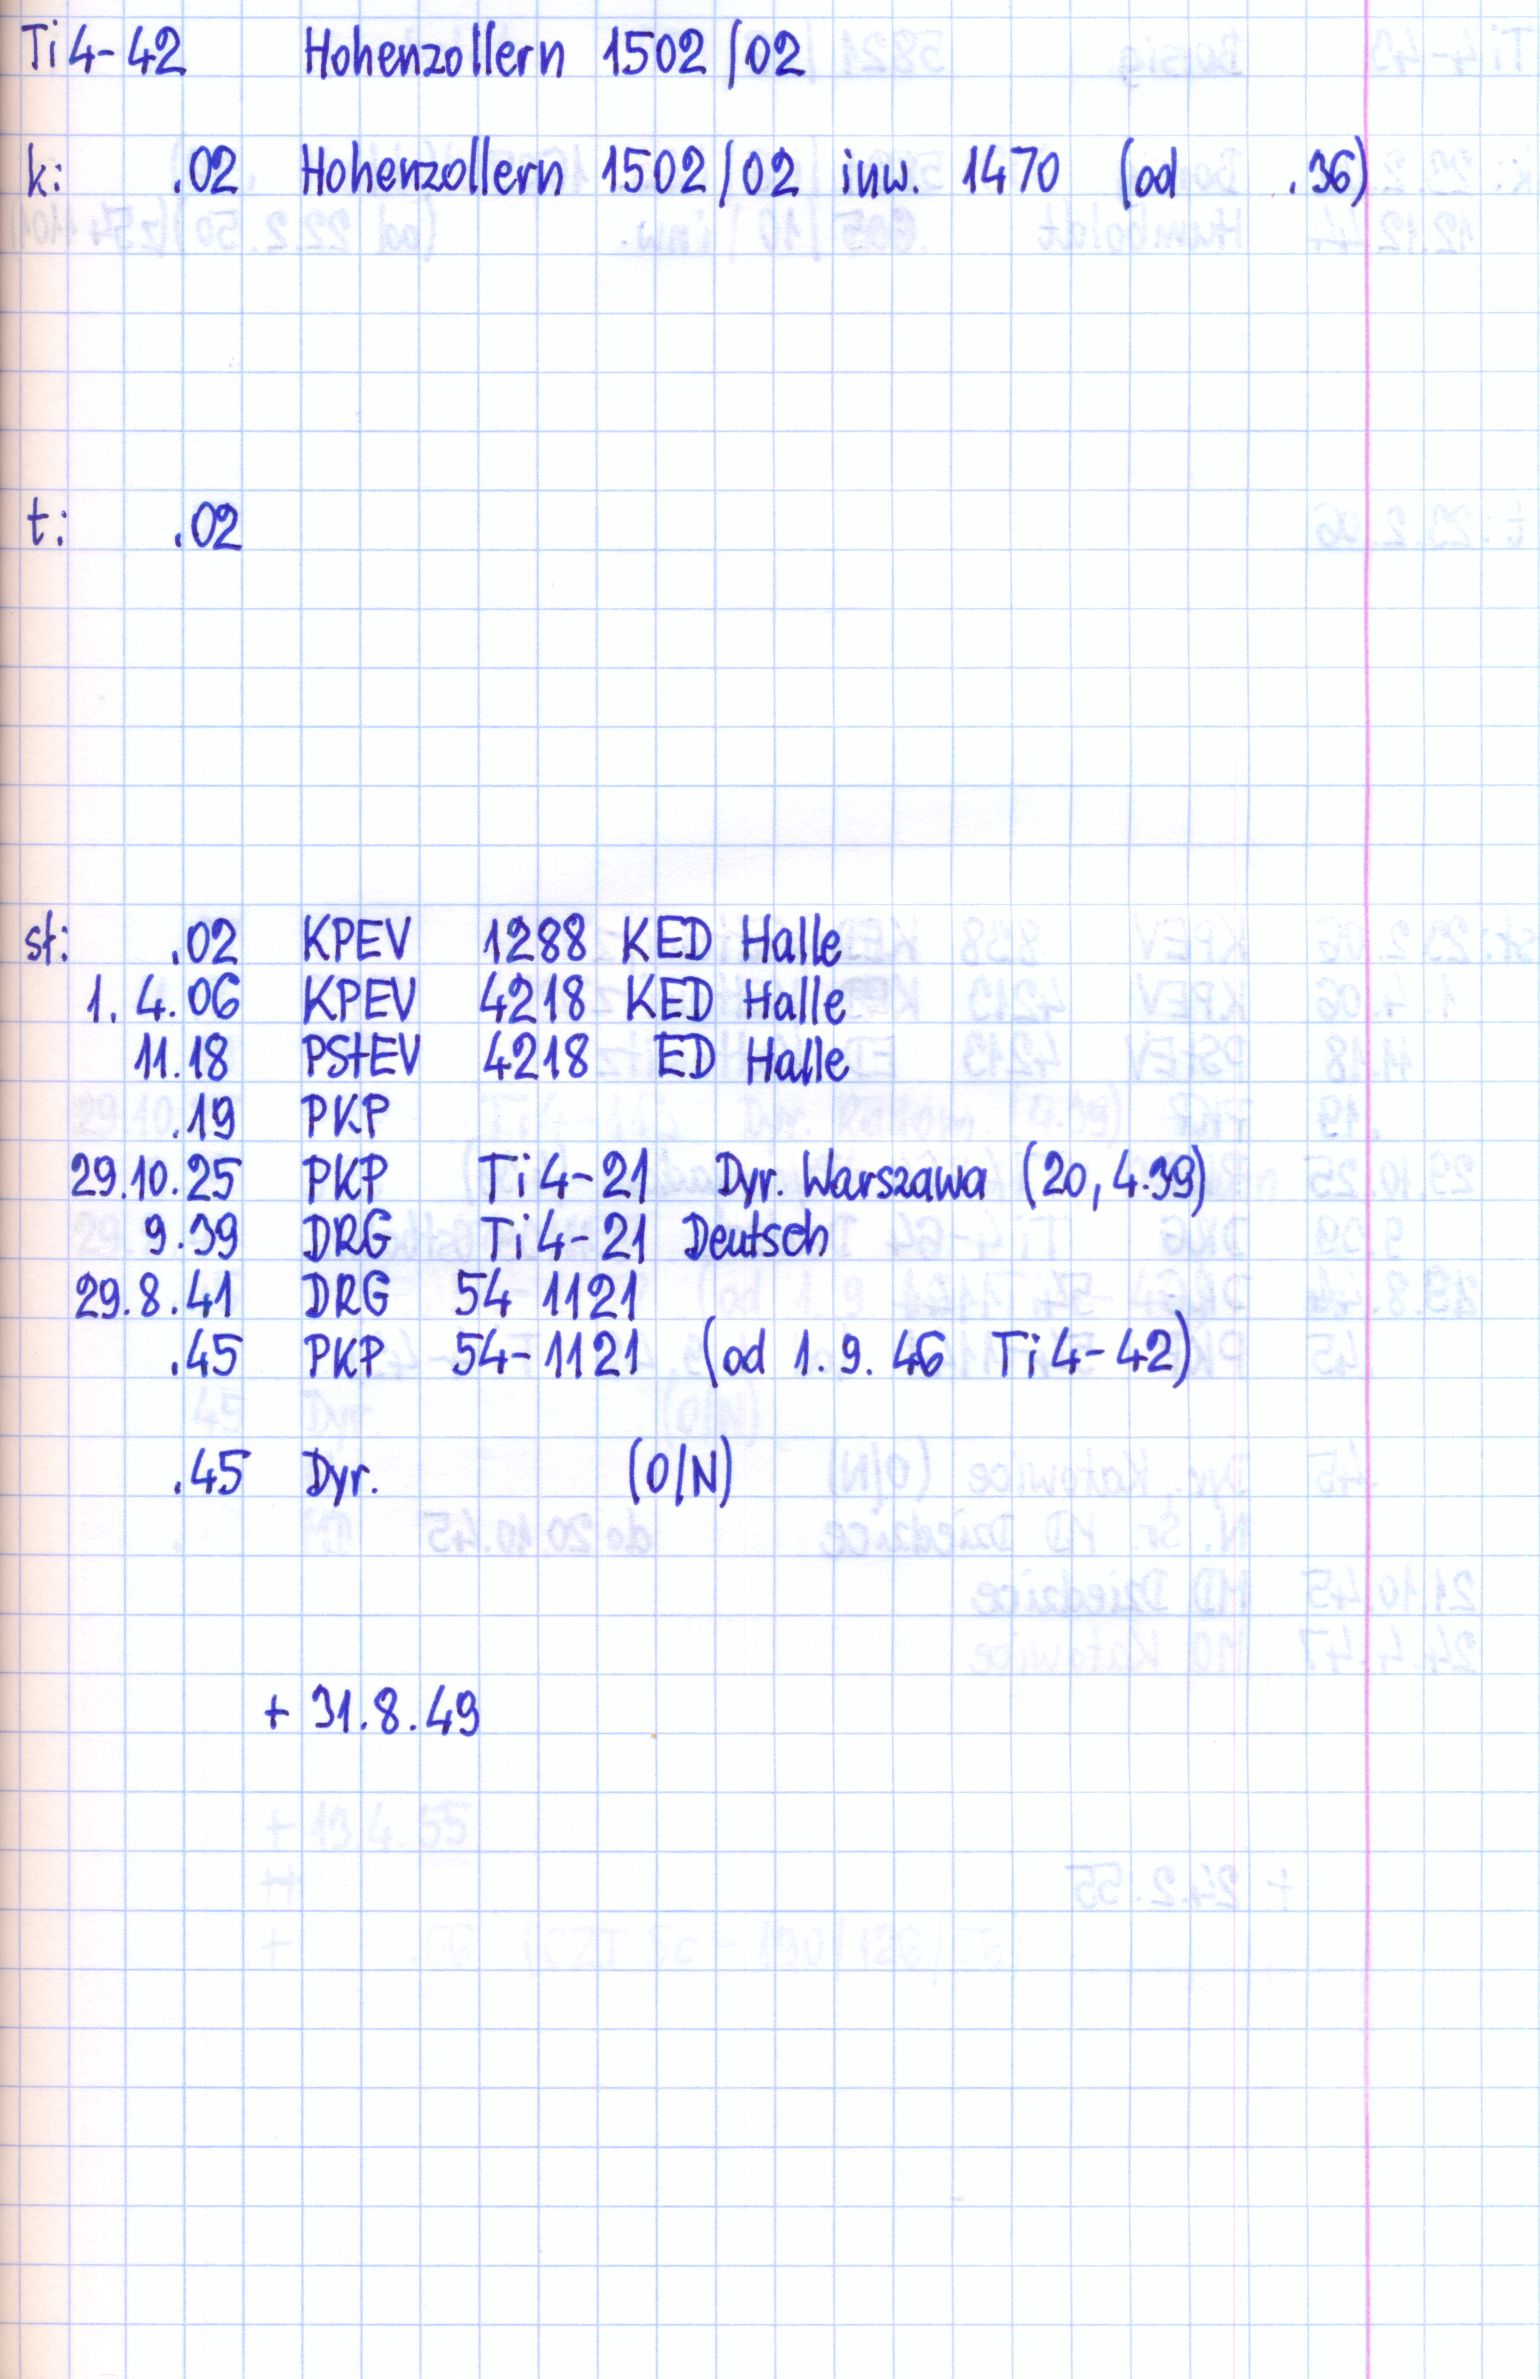 Ti4-42 Hohenzollern 1502/02
k: .02 Hohenzollern 1502/02 inw. 1470 (od .36)
t: .02
st: .02 KPEV 1288 KED Halle
1.4.06 KPEV 4218 KED Halle
11.18 PStEV 4218 ED Halle
.19 PKP
29.10.25 PKP Ti4-21 Dyr. Warszawa (20,4.39)
9.39 DRG Ti4-21 Deutsch
29.8.41 DRG 54 1121
.45 PKP 54-1121 (od 1.9.46 Ti4-42)
.45 Dyr. (O/N)
+ 31.8.49